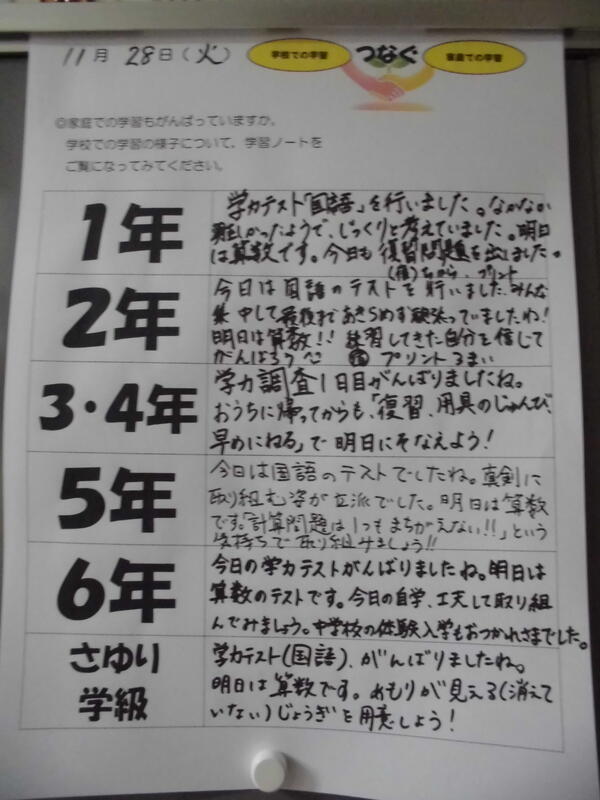 11月 28日(火)
学校での学習 つなぐ 家庭での学習
◎家庭での学習もがんばっていますか。
学校での学習の様子について、学習ノートを
ご覧になってみてください。
1年
学力テスト「国語」を行いました。なかなか
難しかったようで、じっくりと考えていました。明日
は算数です。今日も復習問題を出しました。
プリント
2年
今日は国語のテストを行いました。みんな
集中して最後まであきらめず頑張っていましたね!
明日は算数!! 練習してきた自分を信じて
がんばろう プリント3まい
3・4年
学力調査1日目がんばりましたね。
おうちに帰ってからも、「復習、用具のじゅんび、
早めにねる」で明日にそなえよう!
5年
今日は国語のテストでしたね。真剣に
取り組む姿が立派でした。明日は算数
です。「計算問題は1つもまちがえない!!」という
気持ちで取り組みましょう!!
6年
今日の学力テストがんばりましたね。明日は
算数のテストです。今日の自学、工夫して取り組
んでみましょう。中学校の体験入学もおつかれさまでした。
さゆり
学級
学力テスト(国語)、がんばりましたね。
明日は算数です。めもりが見える(消えて
いない)じょうぎを用意しよう!